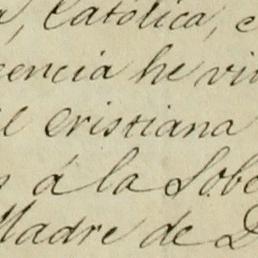 , Católica, e
cencia he vi
el cristiana
á la Sobe
Madre de D